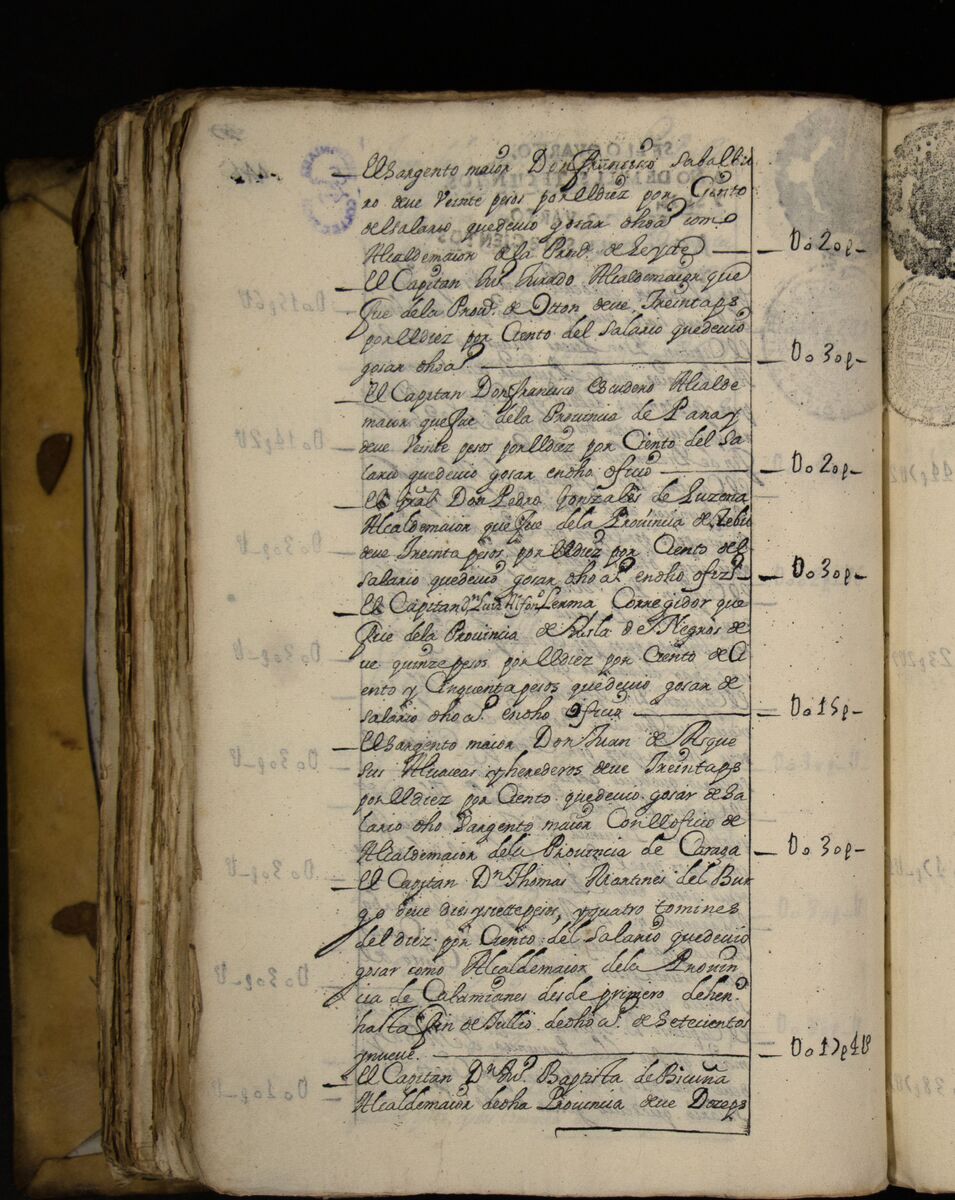 El Sargento maior Don Francisco Saballu
ro deue Veinte pesos por el diez por Ciento
del salario que deuio gosar dho a.º como
Alcalde maior de la Prou.ª de Leyte — U020p—
El Capitan Ju.º Jurado Alcalde maior que
fue de la Prou.ª de Otton deue Treinta ps
por el diez por Ciento del salario que deuio
gosar dho a.º — U030p—
El Capitan Don Francisco Escudero Alcalde
maior que fue de la Prouincia de Panay
deue Veinte pesos por el diez por Ciento del Sa
lario que deuio gosar en dho oficio — U020p—
El Gral Don Pedro Gonzales de Luzena
Alcalde maior que fue de la Prouincia de Zebu
deue Treinta pesos por el diez por Ciento del
salario que deuio gosar dho a.º en dho ofiz.º — U030p—
El Capitan D.n Luis Alfon.º Lerma Corregidor que
fue de la Prouincia de Ysla de Negros de
ue quinze pesos por el diez por Ciento de Ci
ento y Cinquenta pesos que deuio gosar de
salario dho a.º en dho oficio — U015p—
El Sargento maior Don Juan de
sus Aluaceas y herederos deue Treinta ps
por el diez por Ciento que deuio gosar de Sa
lario dho Sargento maior Con el oficio de
Alcalde maior de la Prouincia de Caraga — U030p—
El Capitan D.n Thomas Martines del Bur
go deue dies y siette pesos, y quatro tomines
del diez por Ciento del Salario que deuio
gosar como Alcalde maior de la Prouin
cia de Calamianes desde primero de hen.º
hasta fin de Jullio de dho a.º de Setecientos
y nueue. — U017p4
El Capitan D.n Ju.º Baptista de Bicuña
Alcalde maior de dha Prouincia deue Doze ps